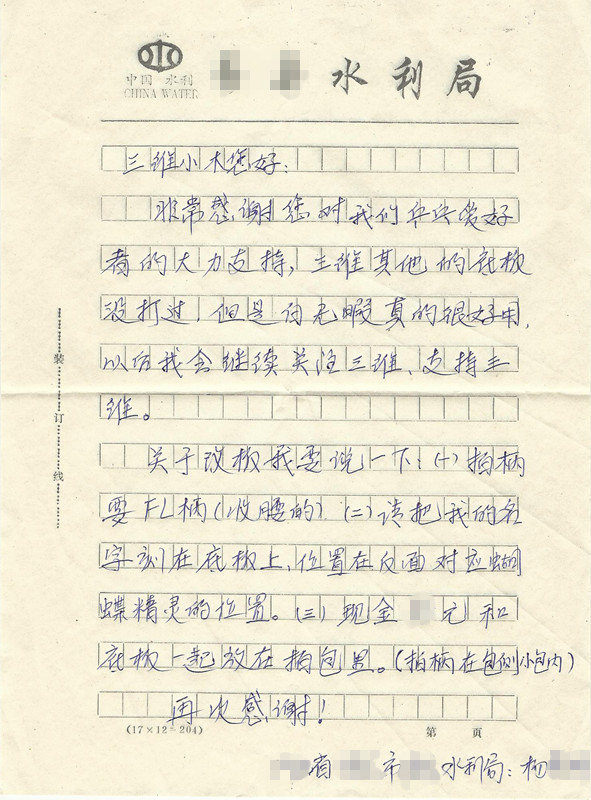 中国 水利
CHINA WATER
水利局
三维小木您好:
非常感谢您对我们乒乓爱好
者的大力支持,三维其他的底板
没打过,但是白无暇真的很好用,
以后我会继续关注三维、支持三
维。
关于改板我要说一下:(一)拍柄
要FL柄(收腰的).(二)请把我的名
字刻在底板上,位置在反面对应蝴
蝶精灵的位置。(三)现金 元和
底板一起放在拍包里。(拍柄在包侧小包内)
再次感谢!
(17×12=204)
第 页
省 市 水利局:杨
装
订
线